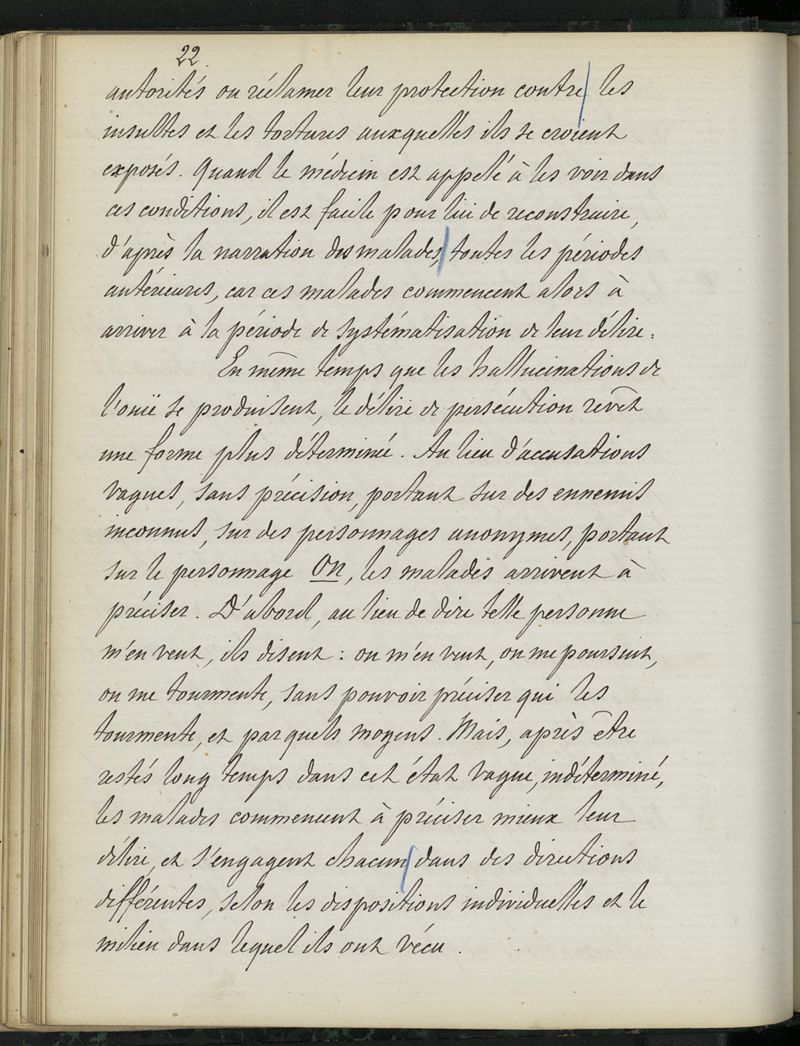 22.
autorités ou réclamer leur protection contre les
insultes et les tortures auxquelles ils se croient
exposés. Quand le médecin est appelé à les voir dans
ces conditions, il est facile pour lui de reconstruire,
d'après la narration des malades, toutes les périodes
antérieures, car ces malades commencent alors à
arriver à la période de systématisation de leur délire.
En même temps que les hallucinations de
l'ouïe se produisent, le délire de persécution revêt
une forme plus déterminée. Au lieu d'accusations
vagues, sans précision, portant sur des ennemis
inconnus, sur des personnages anonymes, portant
sur le personnage On, les malades arrivent à
préciser. D'abord, au lieu de dire telle personne
m'en veut, ils disent : on m'en veut, on me poursuit,
on me tourmente, sans pouvoir préciser qui les
tourmente, et par quels moyens. Mais, après être
restés long temps dans cet état vague, indéterminé,
les malades commencent à préciser mieux leur
délire, et s'engagent chacun dans des directions
différentes, selon les dispositions individuelles et le
milieu dans lequel ils ont vécu.